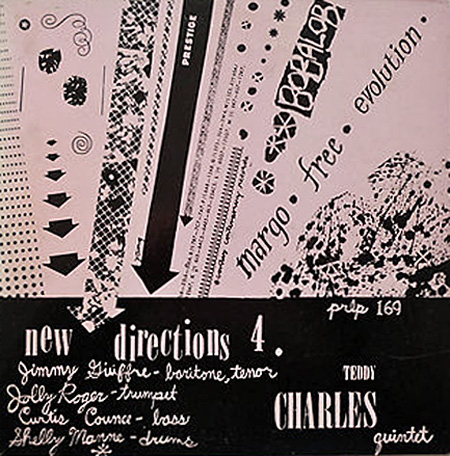 PRESTIGE
BOBALOB
margo • free • evolution •
prlp 169
new directions 4.
Jimmy Giuffre - baritone, tenor
Jolly Roger - trumpet
Curtis Counce - bass
Shelly Manne - drums
TEDDY
CHARLES
quintet